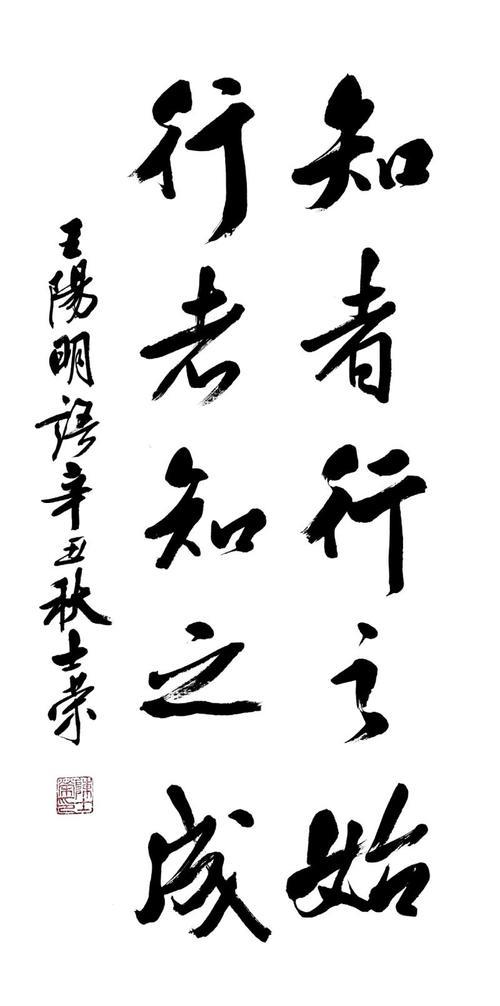 知者行之始
行者知之成
王陽明語辛丑秋士荣
陳士榮印